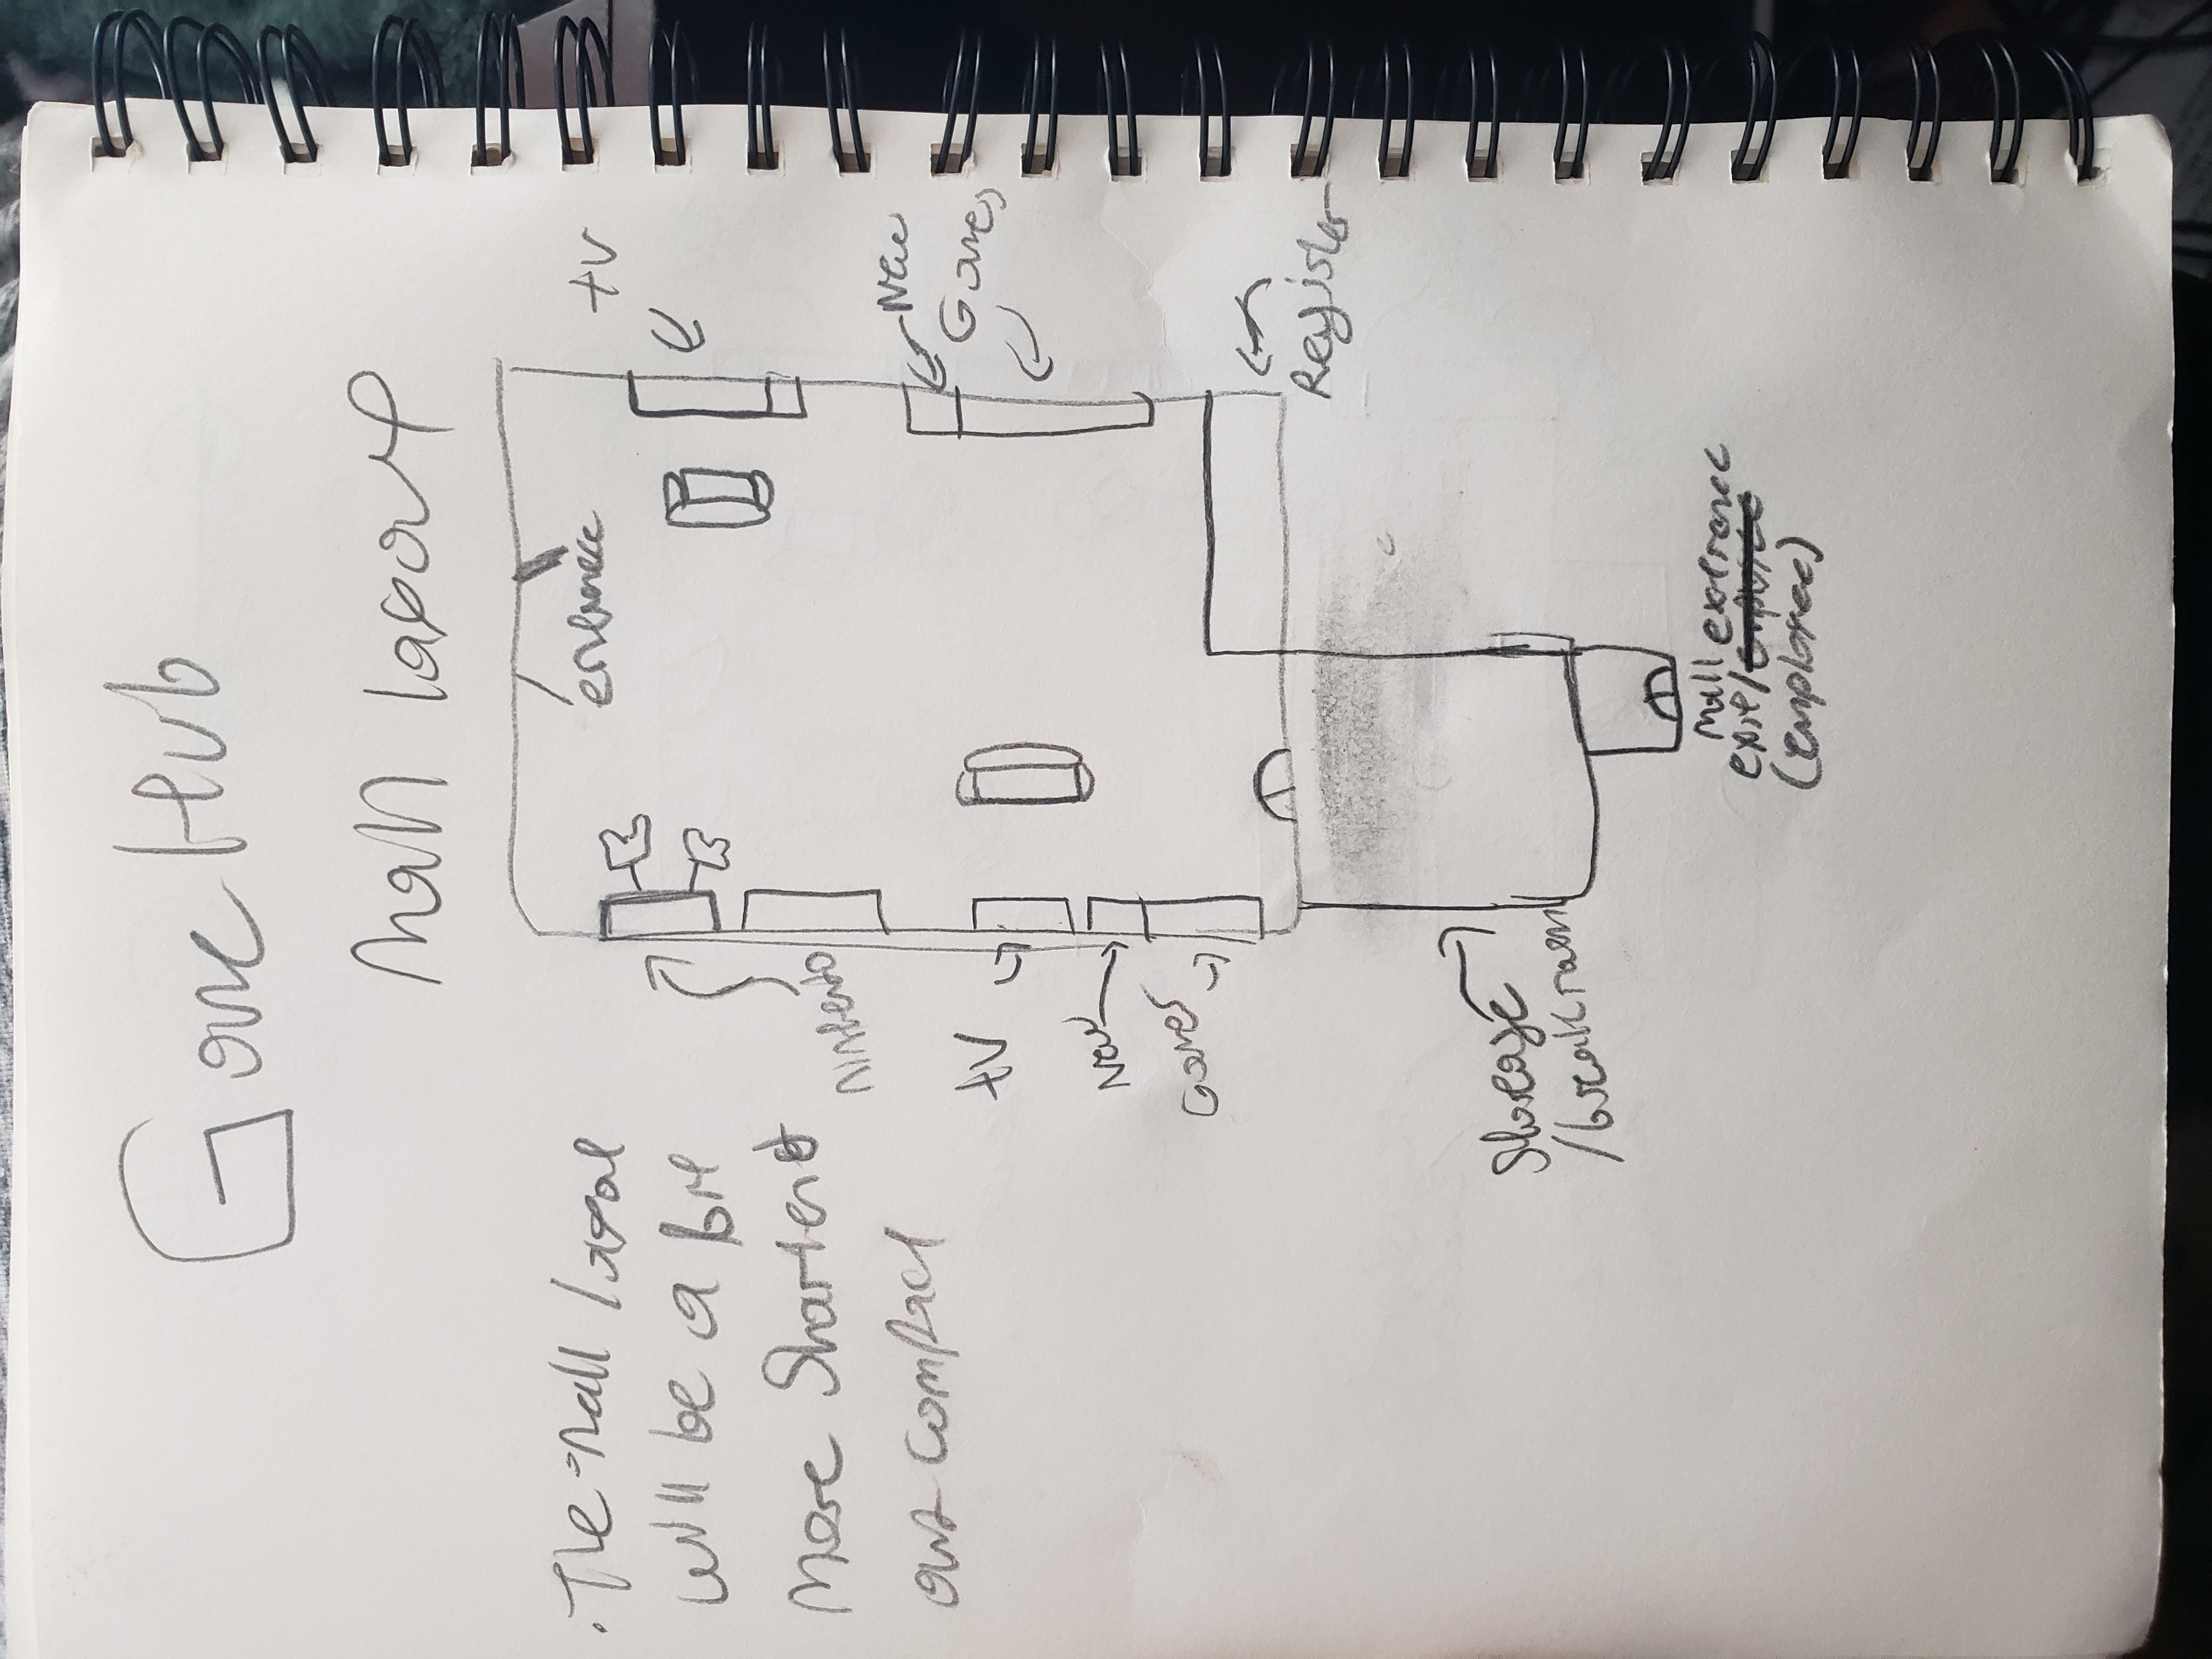 Game Hub
mall layout
entrance
tv
New
Games
Register
Nintendo
tv
New
Games
Storage
/breakroom
mall
exit/
(employee)
• The mall
will be a bit
more
out compact